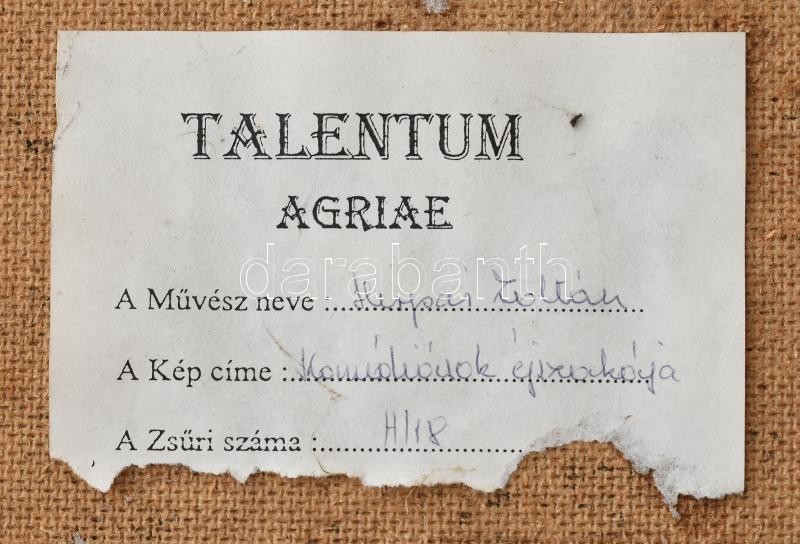 TALENTUM
AGRIAE
darabanth
A Művész neve : Zoltán
A Kép címe : Komédiások éjszakája
A Zsűri száma : H/18